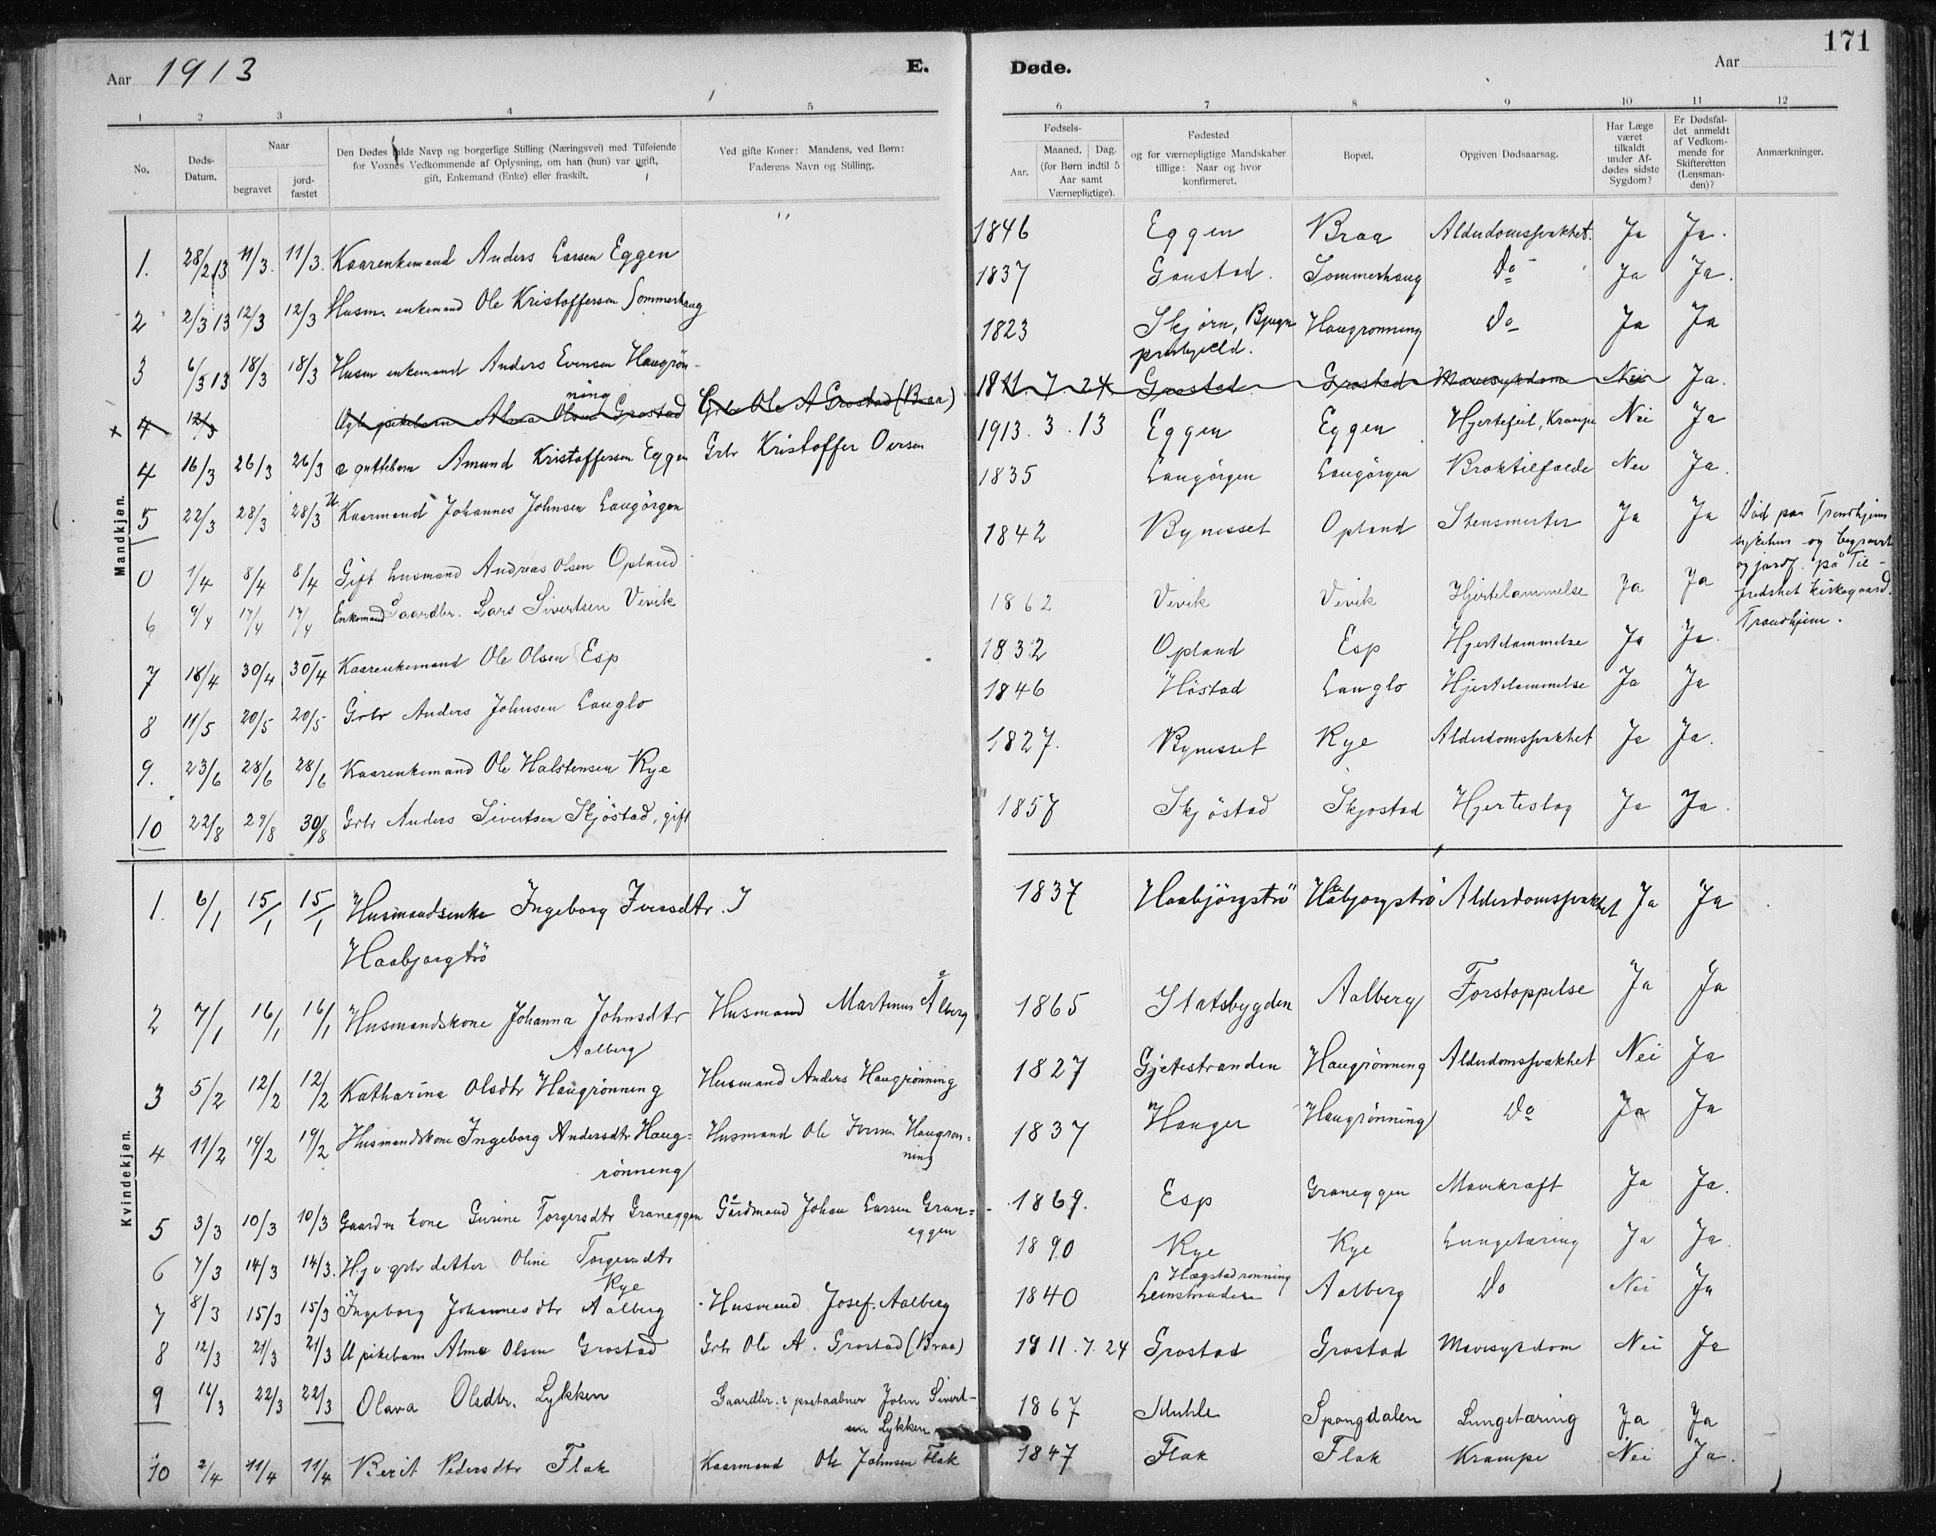 171
Aar 1913 E. Døde. Aar
1 2 3 4 5 6 7 8 9 10 11 12
No.
Døds-
Datum.
Naar
begravet
jord-
fæstet
Den Dødes fulde Navn og borgerlige Stilling (Næringsvei) med Tilføiende
for Voxnes Vedkommende af Oplysning, om han (hun) var ugift,
gift, Enkemand (Enke) eller fraskilt.
Ved gifte Koner: Mandens, ved Børn:
Faderens Navn og Stilling.
Fødsels-
Aar.
Maaned. Dag.
(for Børn indtil 5
Aar samt
Værnepligtige).
Fødested
og for værnepligtige Mandskaber
tillige: Naar og hvor
konfirmeret.
Bopæl.
Opgiven Dødsaarsag.
Har Læge
været
tilkaldt
under Af-
dødes sidste
Sygdom?
Er Dødsfal-
det anmeldt
af Vedkom-
mende for
Skifteretten
(Lensman-
den)?
Anmærkninger.
Mandkjøn.
1. 28/2 13 11/3. 11/3. Kaarenkemand Anders Larsen Eggen 1846 Eggen Braa Alderdomssvakhet. Ja Ja.
2 2/3 13 12/3 12/3 Husm. enkemand Ole Kristoffersen Sommerhaug 1837 Gaustad. Sommerhaug Do Ja Ja.
3 6/3 13 18/3 18/3 Husm enkemand Anders Evensen Haugrön-
ning 1823 Skjørn, Bjugn
prestegjeld. Haugrønning Do Ja Ja
x 4 12/3 Ugb pikebarn Alma Olsen Grostad Grbr Ole A Grostad (Braa) 1811.7.24 Grostad Grostad Mavesykdom Nei Ja.
4 16/3 26/3 26/3 e guttebarn Amund Kristoffersen Eggen Grbr Kristoffer Oversen 1913. 3. 13 Eggen Eggen Hjertefeil, Krampe Nei Ja
5 22/3 28/3 28/3 Kaarmand Johannes Johnsen Langörgen 1835 Langörgen Langörgen Braktilfælde Nei Ja.
0 1/4 8/4 8/4 Gift husmand Andreas Olsen Opland 1842 Bynesset Opland Stensmerter Ja Ja Död paa Trondhjems
sykehus og begravet
og jordf. på Til-
fredshet kirkegaard.
Trondhjem.
6 9/4 17/4 17/4 Enkemand Gaardbr. Lars Sivertsen Vevik 1862 Vevik Vevik Hjertelammelse Ja Ja
7 18/4 30/4 30/4 Kaarenkemand Ole Olsen Esp 1832 Opland Esp Hjertelammelse Ja Ja.
8 11/5 20/5 20/5 Grbr Anders Johnsen Langlo 1846 Höstad Langlo Hjertelammelse Ja Ja
9. 23/6 28/6 28/6 Kaarenkemand Ole Halstensen Rye 1827. Bynesset Rye Alderdomssvakhet Ja Ja.
10 22/8 29/8 30/8 Grbr Anders Sivertsen Skjöstad, gift 1857 Skjöstad Skjostad Hjerteslag Ja Ja.
Kvindekjøn.
1. 6/1 15/1 15/1 Husmandsenke Ingeborg Iversdtr. I
Haabjorgtrö 1837 Haabjörgströ Haabjorgströ Alderdomssvakhet Ja Ja
2 7/1 16/1 16/1 Husmandskone Johanna Johnsdtr
Aalberg Husmand Martinus Ålberg 1865 Statsbygden Aalberg Forstoppelse Ja Ja
3 5/2 12/2 12/2 Katharina Olsdtr Haugrönning Husmand Anders Haugrönning 1827 Gjetestranden Haugrönning Alderdomssvakhet Nei Ja
4 11/2 19/2 19/2 Husmandskone Ingeborg Andersdtr Haug-
rönneng Husmand Ole Iversen Haugrön-
ning 1837 Hanger Haugrönning Do Ja Ja
5 3/3 10/3 10/3 Gaardm kone Gurine Torgersdtr Graneggen Gårdmand Johan Larsen Gran-
eggen 1869. Esp Graneggen Mavekræft Ja Ja.
6 7/3 14/3 14/3. Hj v grbr datter Oline Torgersdtr
Rye 1890 Rye Rye Lungetæring Ja Ja.
7 8/3 15/3 15/3 Ingeborg Johannesdtr Aalberg Husmand Josef. Aalberg 1840 Hægstadrönning
Leinstranden Aalberg Do Nei Ja
8 12/3 21/3 21/3 U pikebarn Alma Olsen Grostad Grbr Ole A. Grostad (Braa) 1911.7.24 Grostad Grostad Mavesykdom Nei Ja
9 14/3 22/3 22/3 Olava Olsdtr. Lykken Gaardbr. & postaabner John Sivert-
sen Lykken 1867 Muhle Spongdalen Lungetæring Ja Ja
10 2/4 11/4 11/4 Berit Pedersdtr Flak Kaarmand Ole Johnsen Flak 1847 Flak Flak Krampe Nei Ja.